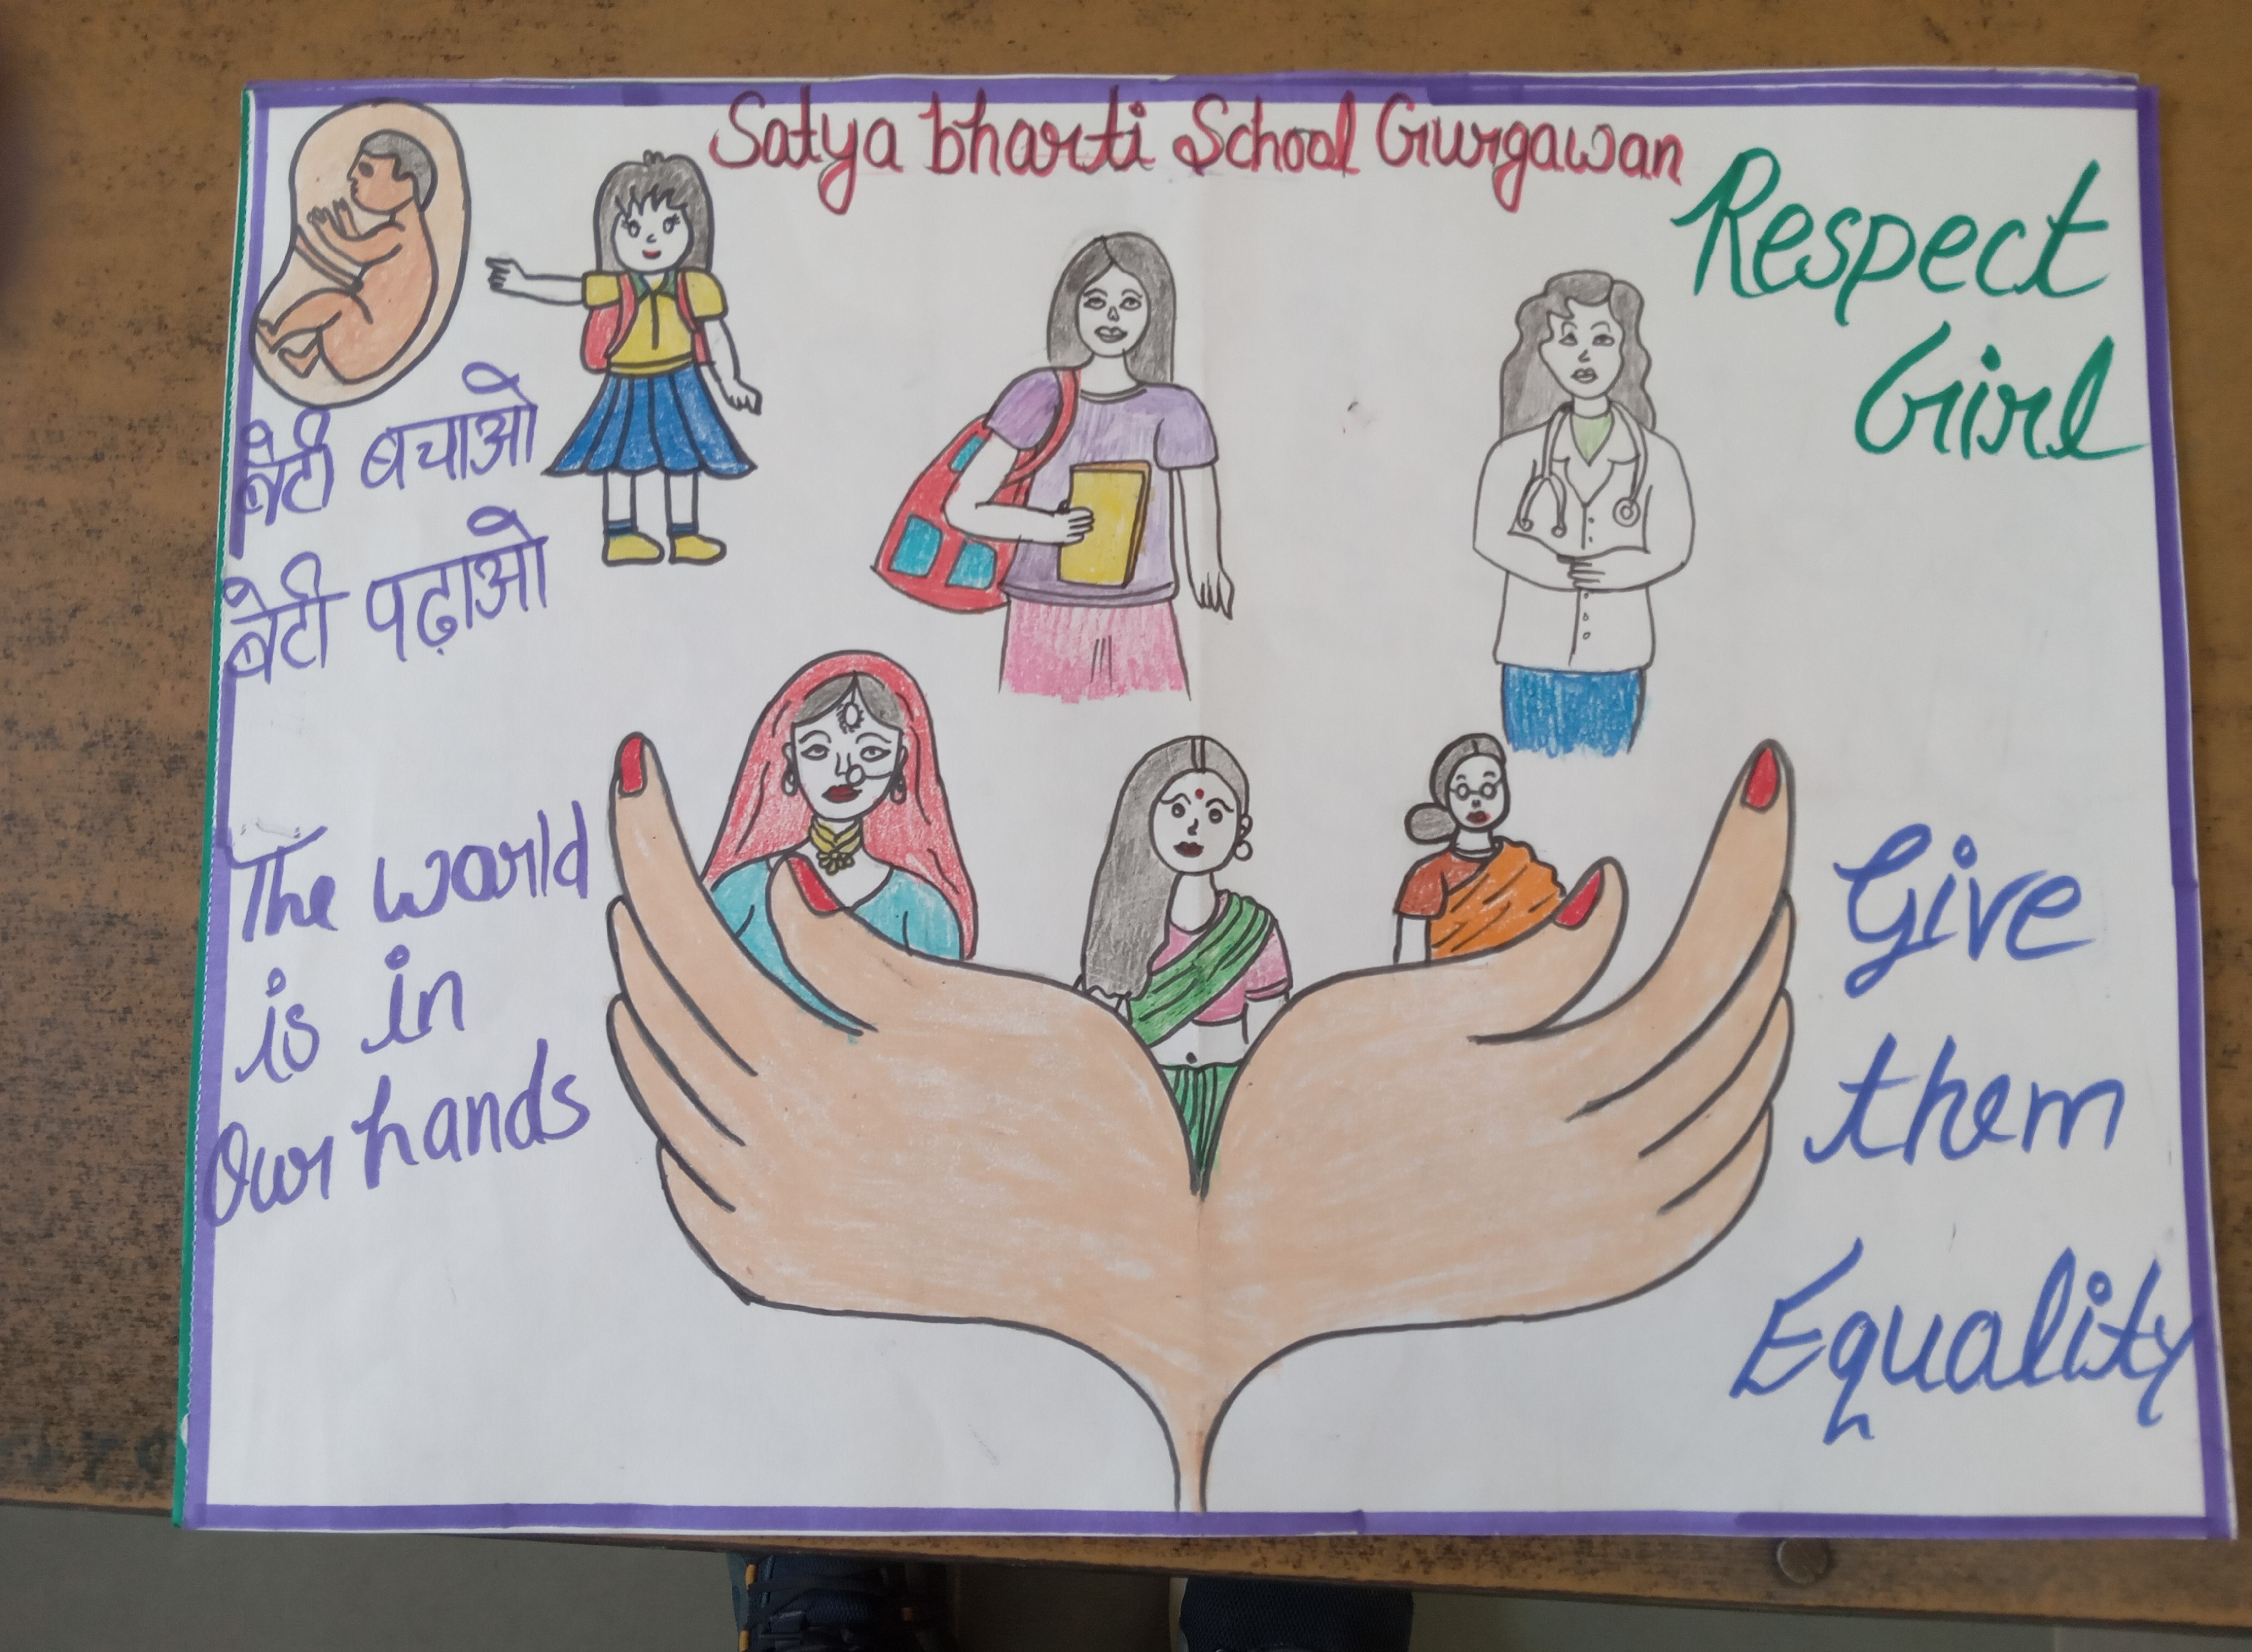 Satya bharti School Gurgawan
Respect
Girl
बेटी बचाओ
बेटी पढ़ाओ
The world
is in
Our hands
Give
them
Equality